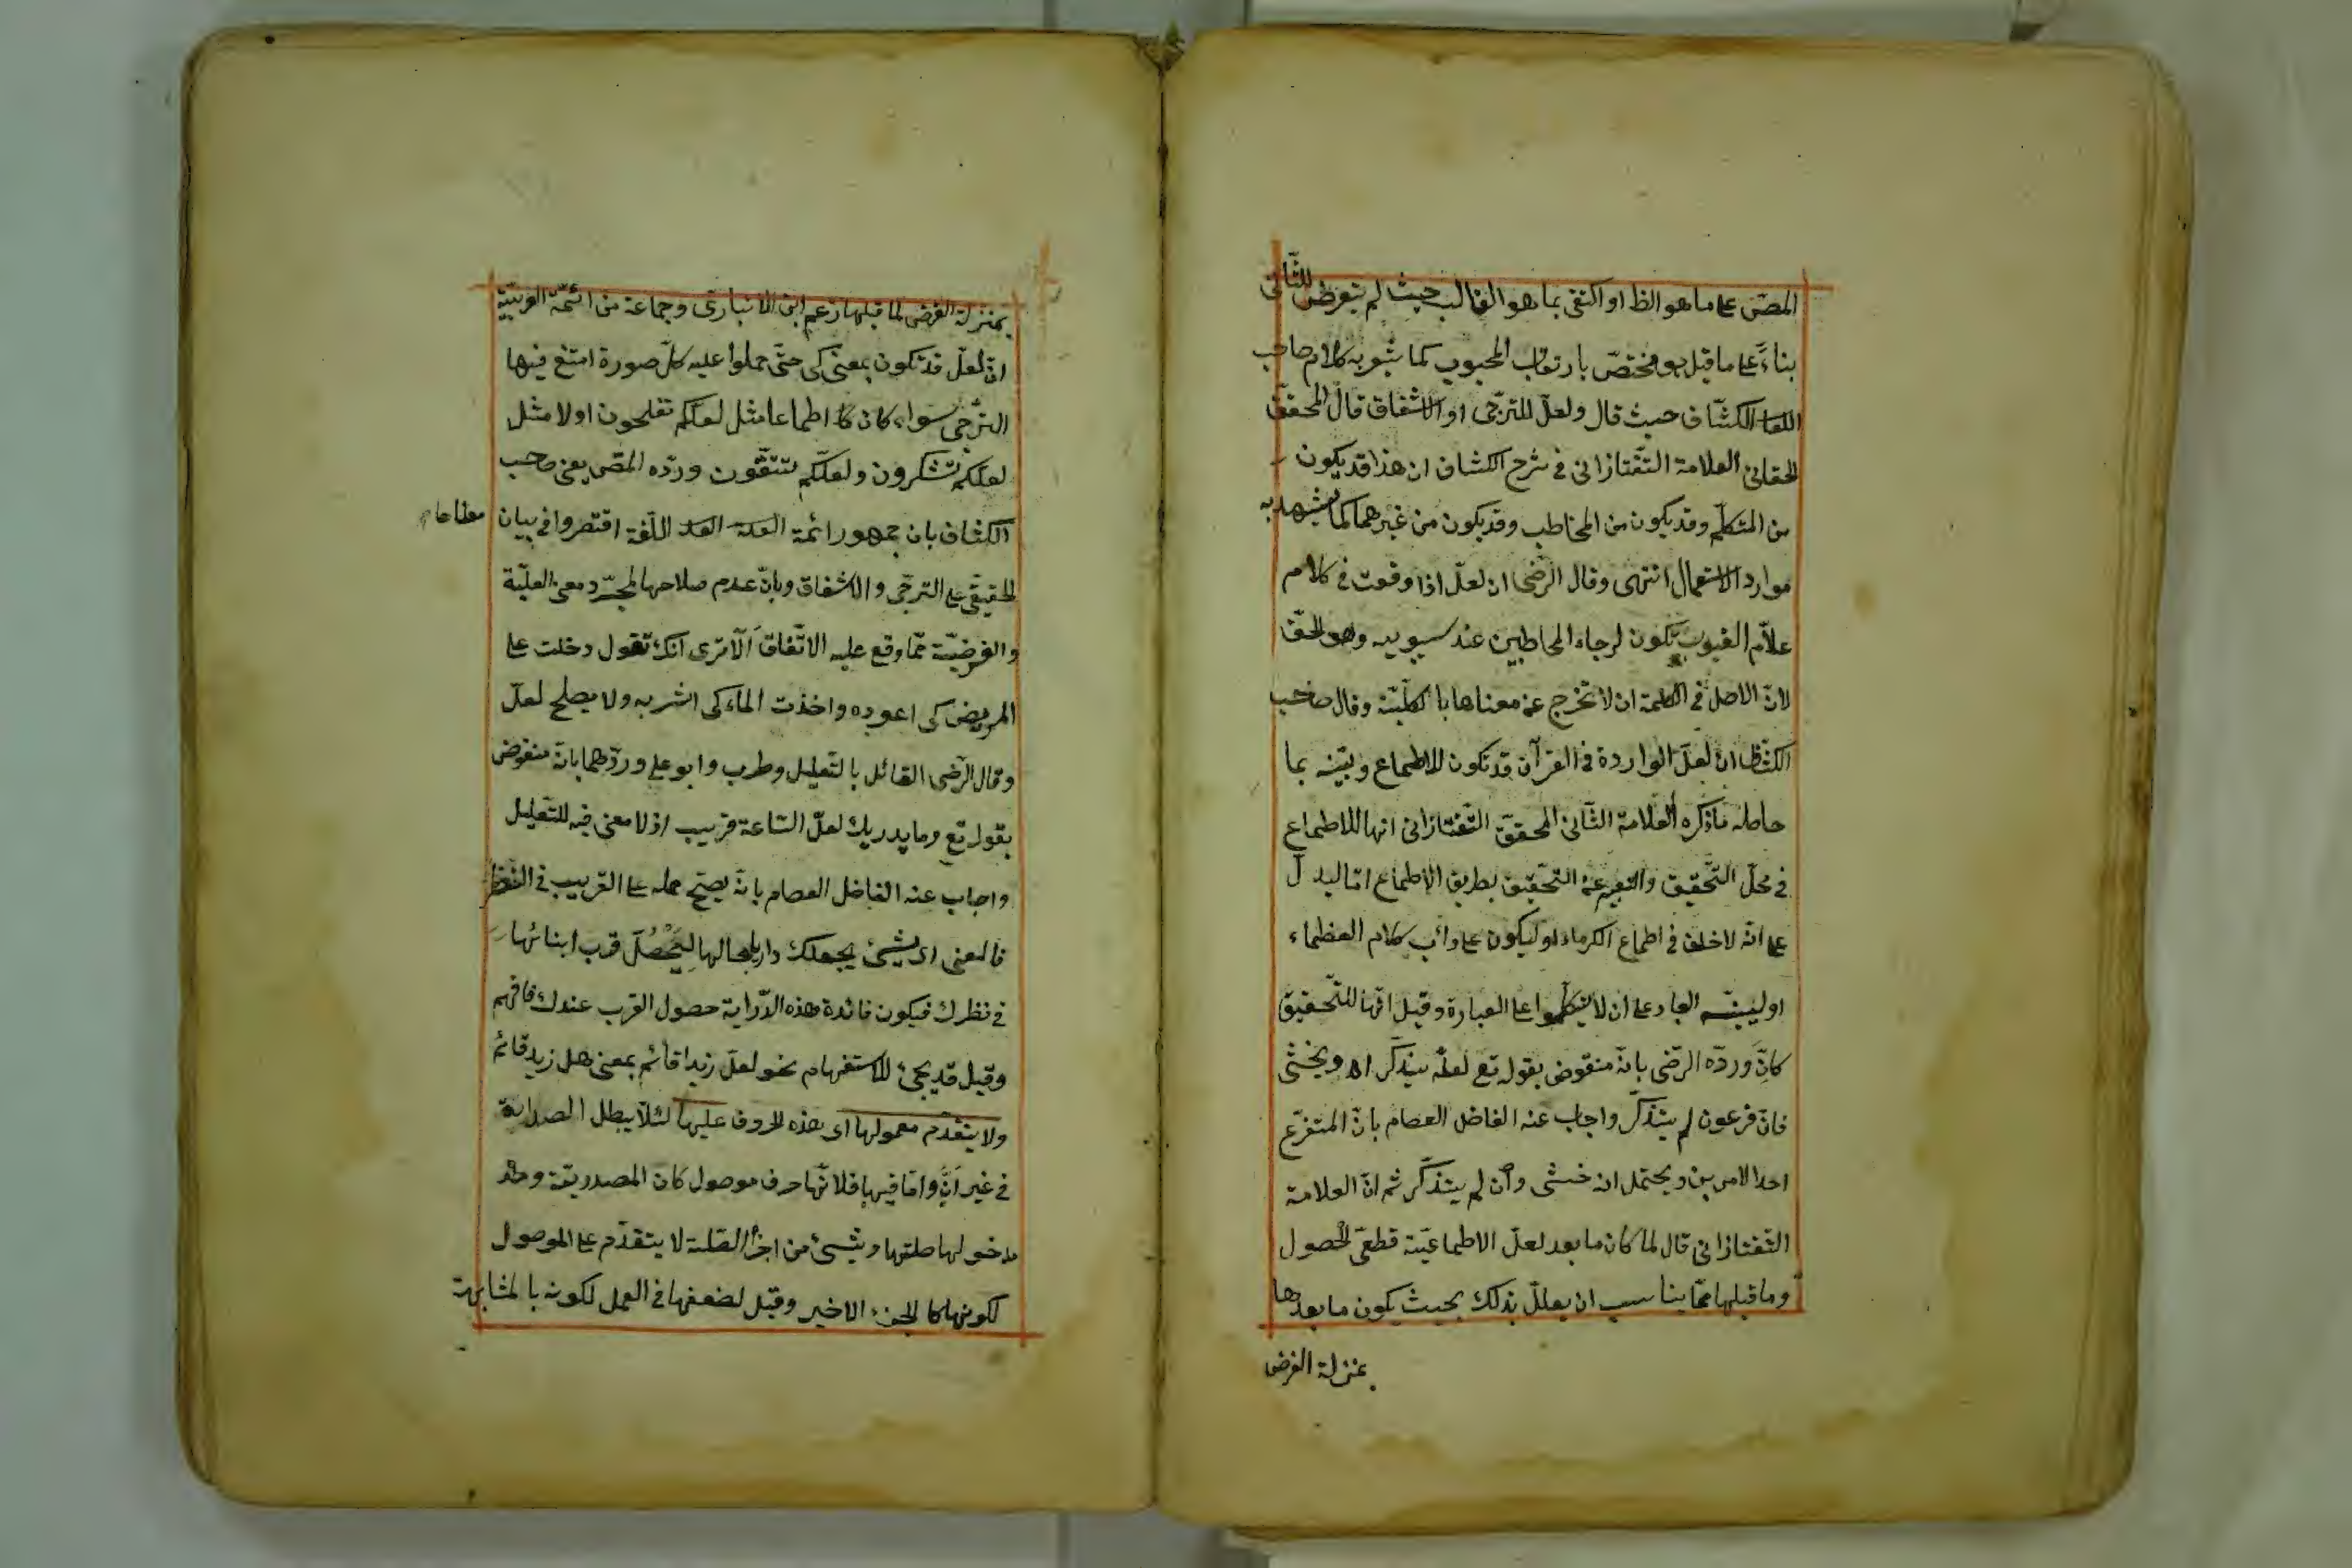 المصّ على ما هو الظ او اكتفى بما هو الغالب حيث لم يتعرض للثّانى
بناءً على ما قيل هو مختصّ بارتقاب المحبوب كما يشعر به كلام صاحب
الكشّاف حيث قال ولعلّ للترّجى او الاشفاق قال المحقق
الحقانى العلامة التّفتازانى فى شرح الكشاف ان هذا قد يكون
من المتكلّم وقد يكون من المخاطب وقد يكون من غيرهما كما يشهد به
موارد الاستعمال انتهى وقال الرضى ان لعلّ اذا وقعت فى كلام
علاّم الغيوب تكون لرجاء المخاطبين عند سيبويه وهو الحقّ
لانّ الاصل فى الكلمة ان لا تخرج عن معناها بالكليّة وقال صاحب
الكشّاف ان لعلّ الواردة فى القرآن قد تكون للاطماع وبيّنه بما
حاصله ما ذكره العلامة الثّانى المحقق التّفتازانى انها للاطماع
فى محلّ التّحقيق والتعبير عن التّحقيق بطريق الاطماع امّا ليدلّ
على انّه لا خلف فى اطماع الكرماء او ليكون على دأب كلام العظماء
او لينبّه العباد على ان لا يتكلّموا على العبارة وقيل انّها للتّحقيق
كانّ وردّه الرّضى بانّه منقوض بقوله تع لعلّه يتذكّر او يخشى
فانّ فرعون لم يتذكّر واجاب عنه الفاضل العصام بانّ المتفرّع
احد الامرين ويحتمل انه خشى وان لم يتذكّر ثم انّ العلامة
التّفتازانى قال لما كان ما بعد لعلّ الاطماعيّة قطعىّ الحصول
وما قبلها ممّا يناسب ان يعلّل بذلك بحيث يكون ما بعدها
بمنزلة الغرض
بمنزلة الغرض لما قبلها زعم ابن الانبارى وجماعة من ائمّة العربيّة
انّ لعلّ قد تكون بمعنى كى حتّى حملوا عليه كلّ صورة امتنع فيها
الترّجى سواء كان اطماعا مثل لعلّكم تفلحون اولا مثل
لعلّكم تشكرون ولعلّكم تتّقون وردّه المصّ يعنى صاحب
الكشاف بان جمهور ائمة اللّغة اقتصروا فى بيان
الحقيقى على الترجّى والاشفاق وبانّ عدم صلاحها لمجرّد معنى العليّة
والغرضيّة ممّا وقع عليه الاتّفاق ألا ترى انّك تقول دخلت على
المريض كى اعوده واخذت الماء كى اشربه ولا يصلح لعلّ
وقال الرّضى القائل بالتّعليل وطرب وابو على وردّهما بانّه منقوض
بقوله تع وما يدريك لعلّ السّاعة قريب اذ لا معنى فيه للتّعليل
واجاب عنه الفاضل العصام بانّه يصحّ حمله على القريب فى النّظر
فالمعنى اى شئ يجعلك داريا بحالها ليَحْصُلَ قرب ابنائها
فى نظرك فيكون فائدة هذه الدّراية حصول القرب عندك فافهم
وقيل قد يجئ للاستفهام نحو لعلّ زيدا قائم بمعنى هل زيد قائم
ولا يتقدم معمولها اى هذه الحروف عليها لئلاّ يبطل الصدارة
فى غير انَّ وامّا فيها فلانّها حرف موصول كان المصدريّة
مدخولها صلتها وشئ من اجزاء الصّلة لا يتقدّم على الموصول
لكونها كالجزء الاخير وقيل لضعفها فى العمل لكونه بالمشابهة